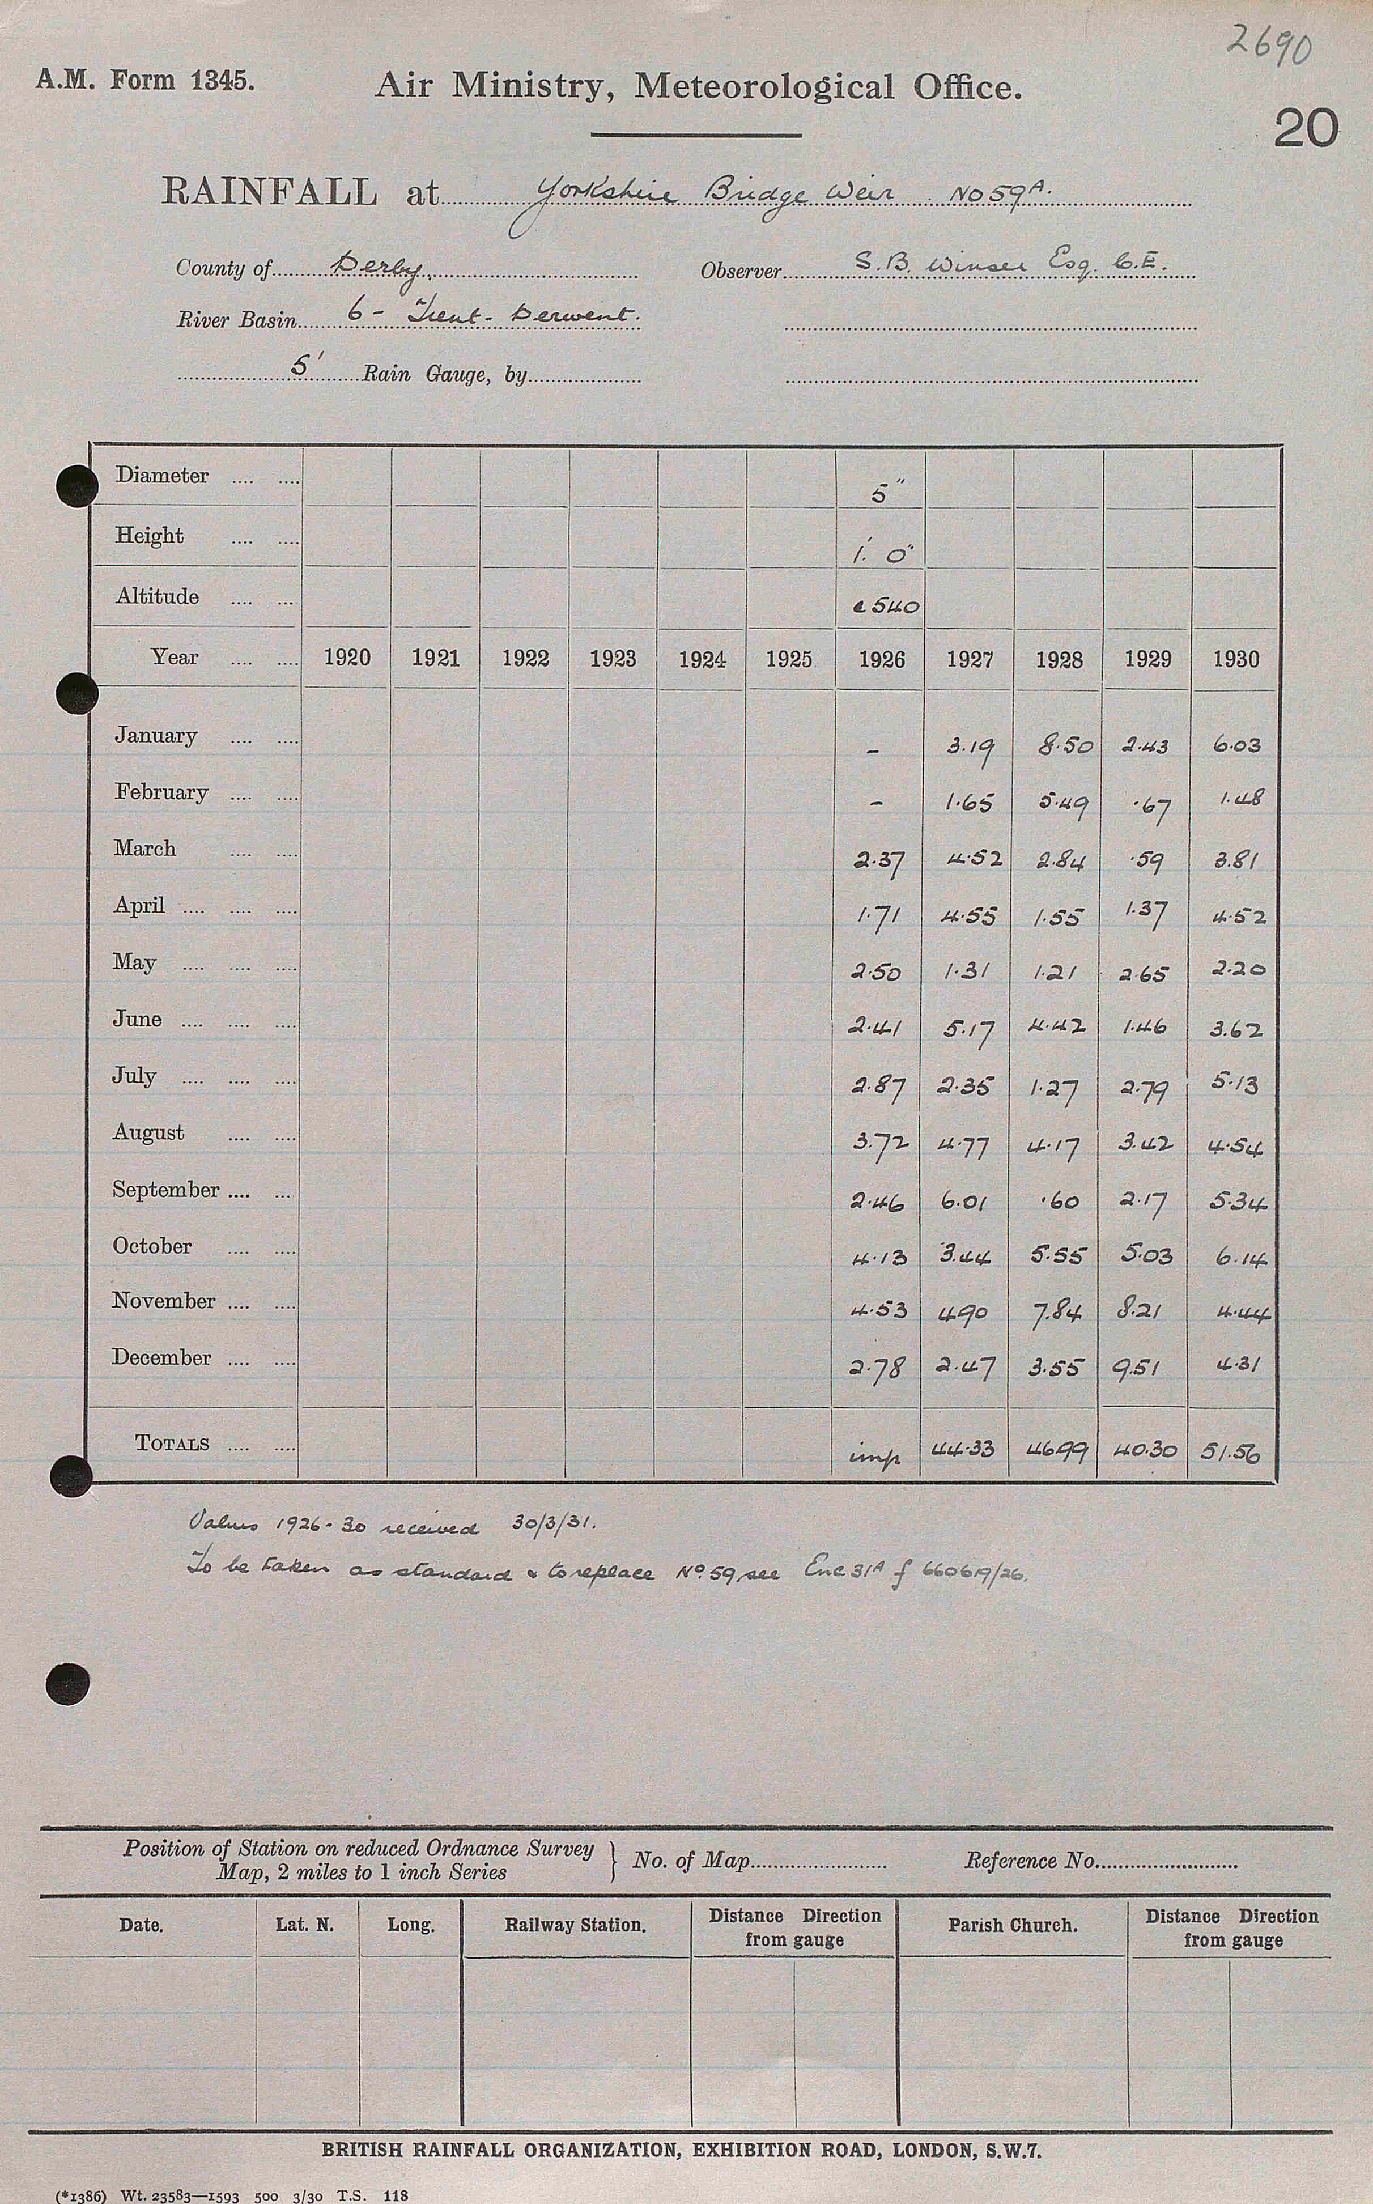 2690
A.M. Form 1345. Air Ministry, Meteorological Office.
20
RAINFALL at Yorkshire Bridge Weir No 59A.
County of Derby. Observer S.B. Winser Esq. C.E.
River Basin 6 - Trent - Derwent.
5' Rain Gauge, by
Diameter .... .... 5"
Height .... .... 1' 0"
Altitude .... .... c 540
Year .... .... 1920 1921 1922 1923 1924 1925 1926 1927 1928 1929 1930
January .... .... - 3.19 8.50 2.43 6.03
February .... .... - 1.65 5.49 .67 1.48
March .... .... 2.37 4.52 2.84 .59 3.81
April .... .... .... 1.71 4.55 1.55 1.37 4.52
May .... .... .... 2.50 1.31 1.21 2.65 2.20
June .... .... .... 2.41 5.17 4.42 1.46 3.62
July .... .... .... 2.87 2.35 1.27 2.79 5.13
August .... .... 3.72 4.77 4.17 3.42 4.54
September .... .... 2.46 6.01 .60 2.17 5.34
October .... .... 4.13 3.44 5.55 5.03 6.14
November .... .... 4.53 4.90 7.84 8.21 4.44
December .... .... 2.78 2.47 3.55 9.51 4.31
TOTALS .... .... imp 44.33 46.99 40.30 51.56
Values 1926-30 received 30/3/31.
To be taken as standard & to replace No. 59, see Enc 31A of 66069/26.
Position of Station on reduced Ordnance Survey
Map, 2 miles to 1 inch Series } No. of Map Reference No.
Date. Lat. N. Long. Railway Station. Distance Direction from gauge Parish Church. Distance Direction from gauge
BRITISH RAINFALL ORGANIZATION, EXHIBITION ROAD, LONDON, S.W.7.
(*1386) Wt. 23583—1593 500 3/30 T.S. 118